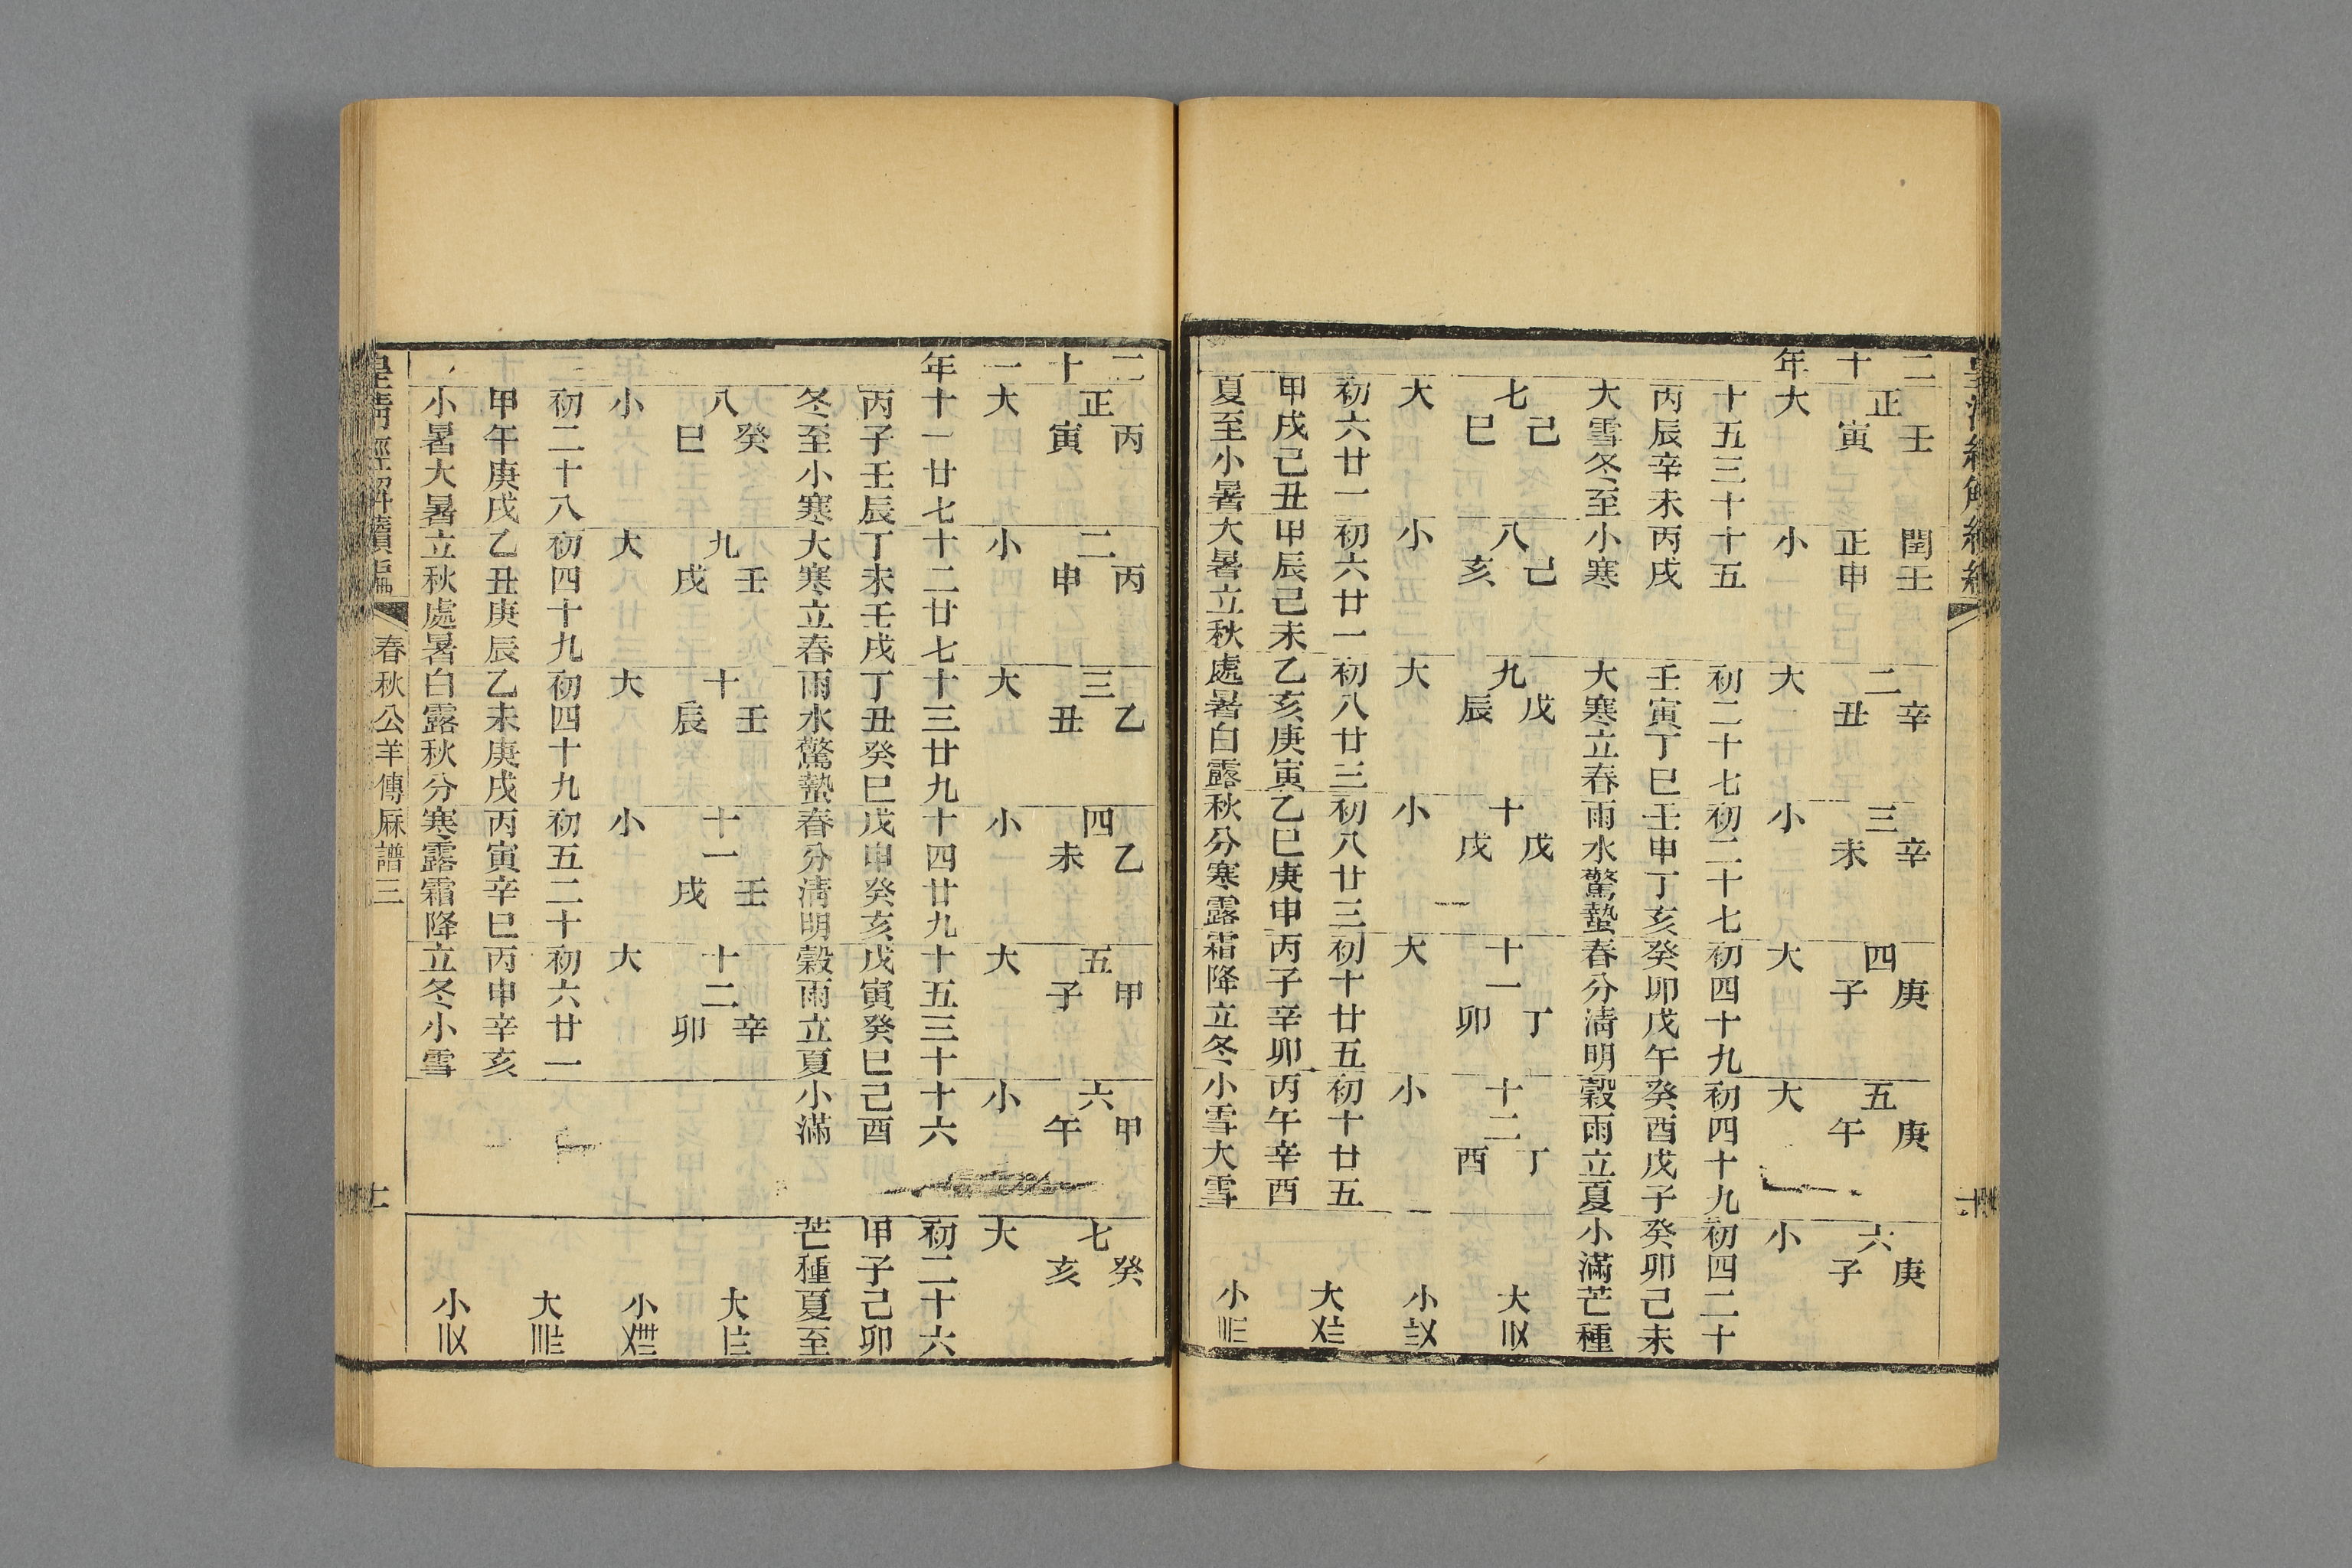 皇清經解續編
十
二 壬 閏壬 辛 辛 庚 庚 庚
正 二 三 四 五 六
十 寅 正申 丑 未 子 午 子
年 大 小 大 小 大 大 小
十五三十 十五 初二十七 初二十七 初四十九 初四十九 初四二十
丙辰辛未 丙戌 壬寅丁巳 壬申丁亥 癸卯戊午 癸酉戊子 癸卯己未
大雪冬至 小寒 大寒立春 雨水驚蟄 春分清明 穀雨立夏 小滿芒種
己 己 戊 戊 丁 丁
七 八 九 十 十一 十二 大
巳 亥 辰 戌 卯 酉
大 小 大 小 大 小 小
初六廿一 初六廿一 初八廿三 初八廿三 初十廿五 初十廿五 大
甲戌己丑 甲辰己未 乙亥庚寅 乙巳庚申 丙子辛卯 丙午辛酉
夏至小暑 大暑立秋 處暑白露 秋分寒露 霜降立冬 小雪大雪 小
二 丙 丙 乙 乙 甲 甲 癸
正 二 三 四 五 六 七
十 寅 申 丑 未 子 午 亥
一 大 小 大 小 大 小 大
年 十一廿七 十二廿七 十三廿九 十四廿九 十五三十 十六 初二十六
丙子壬辰 丁未壬戌 丁丑癸巳 戊申癸亥 戊寅癸巳 己酉 甲子己卯
冬至小寒 大寒立春 雨水驚蟄 春分清明 穀雨立夏 小滿 芒種夏至
癸 壬 壬 壬 辛
八 九 十 十一 十二 大
巳 戌 辰 戌 卯
小 大 大 小 大 小
初二十八 初四十九 初四十九 初五二十 初六廿一 大
甲午庚戌 乙丑庚辰 乙未庚戌 丙寅辛巳 丙申辛亥
小暑大暑 立秋處暑 白露秋分 寒露霜降 立冬小雪 小
皇清經解續編 春秋公羊傳厤譜三